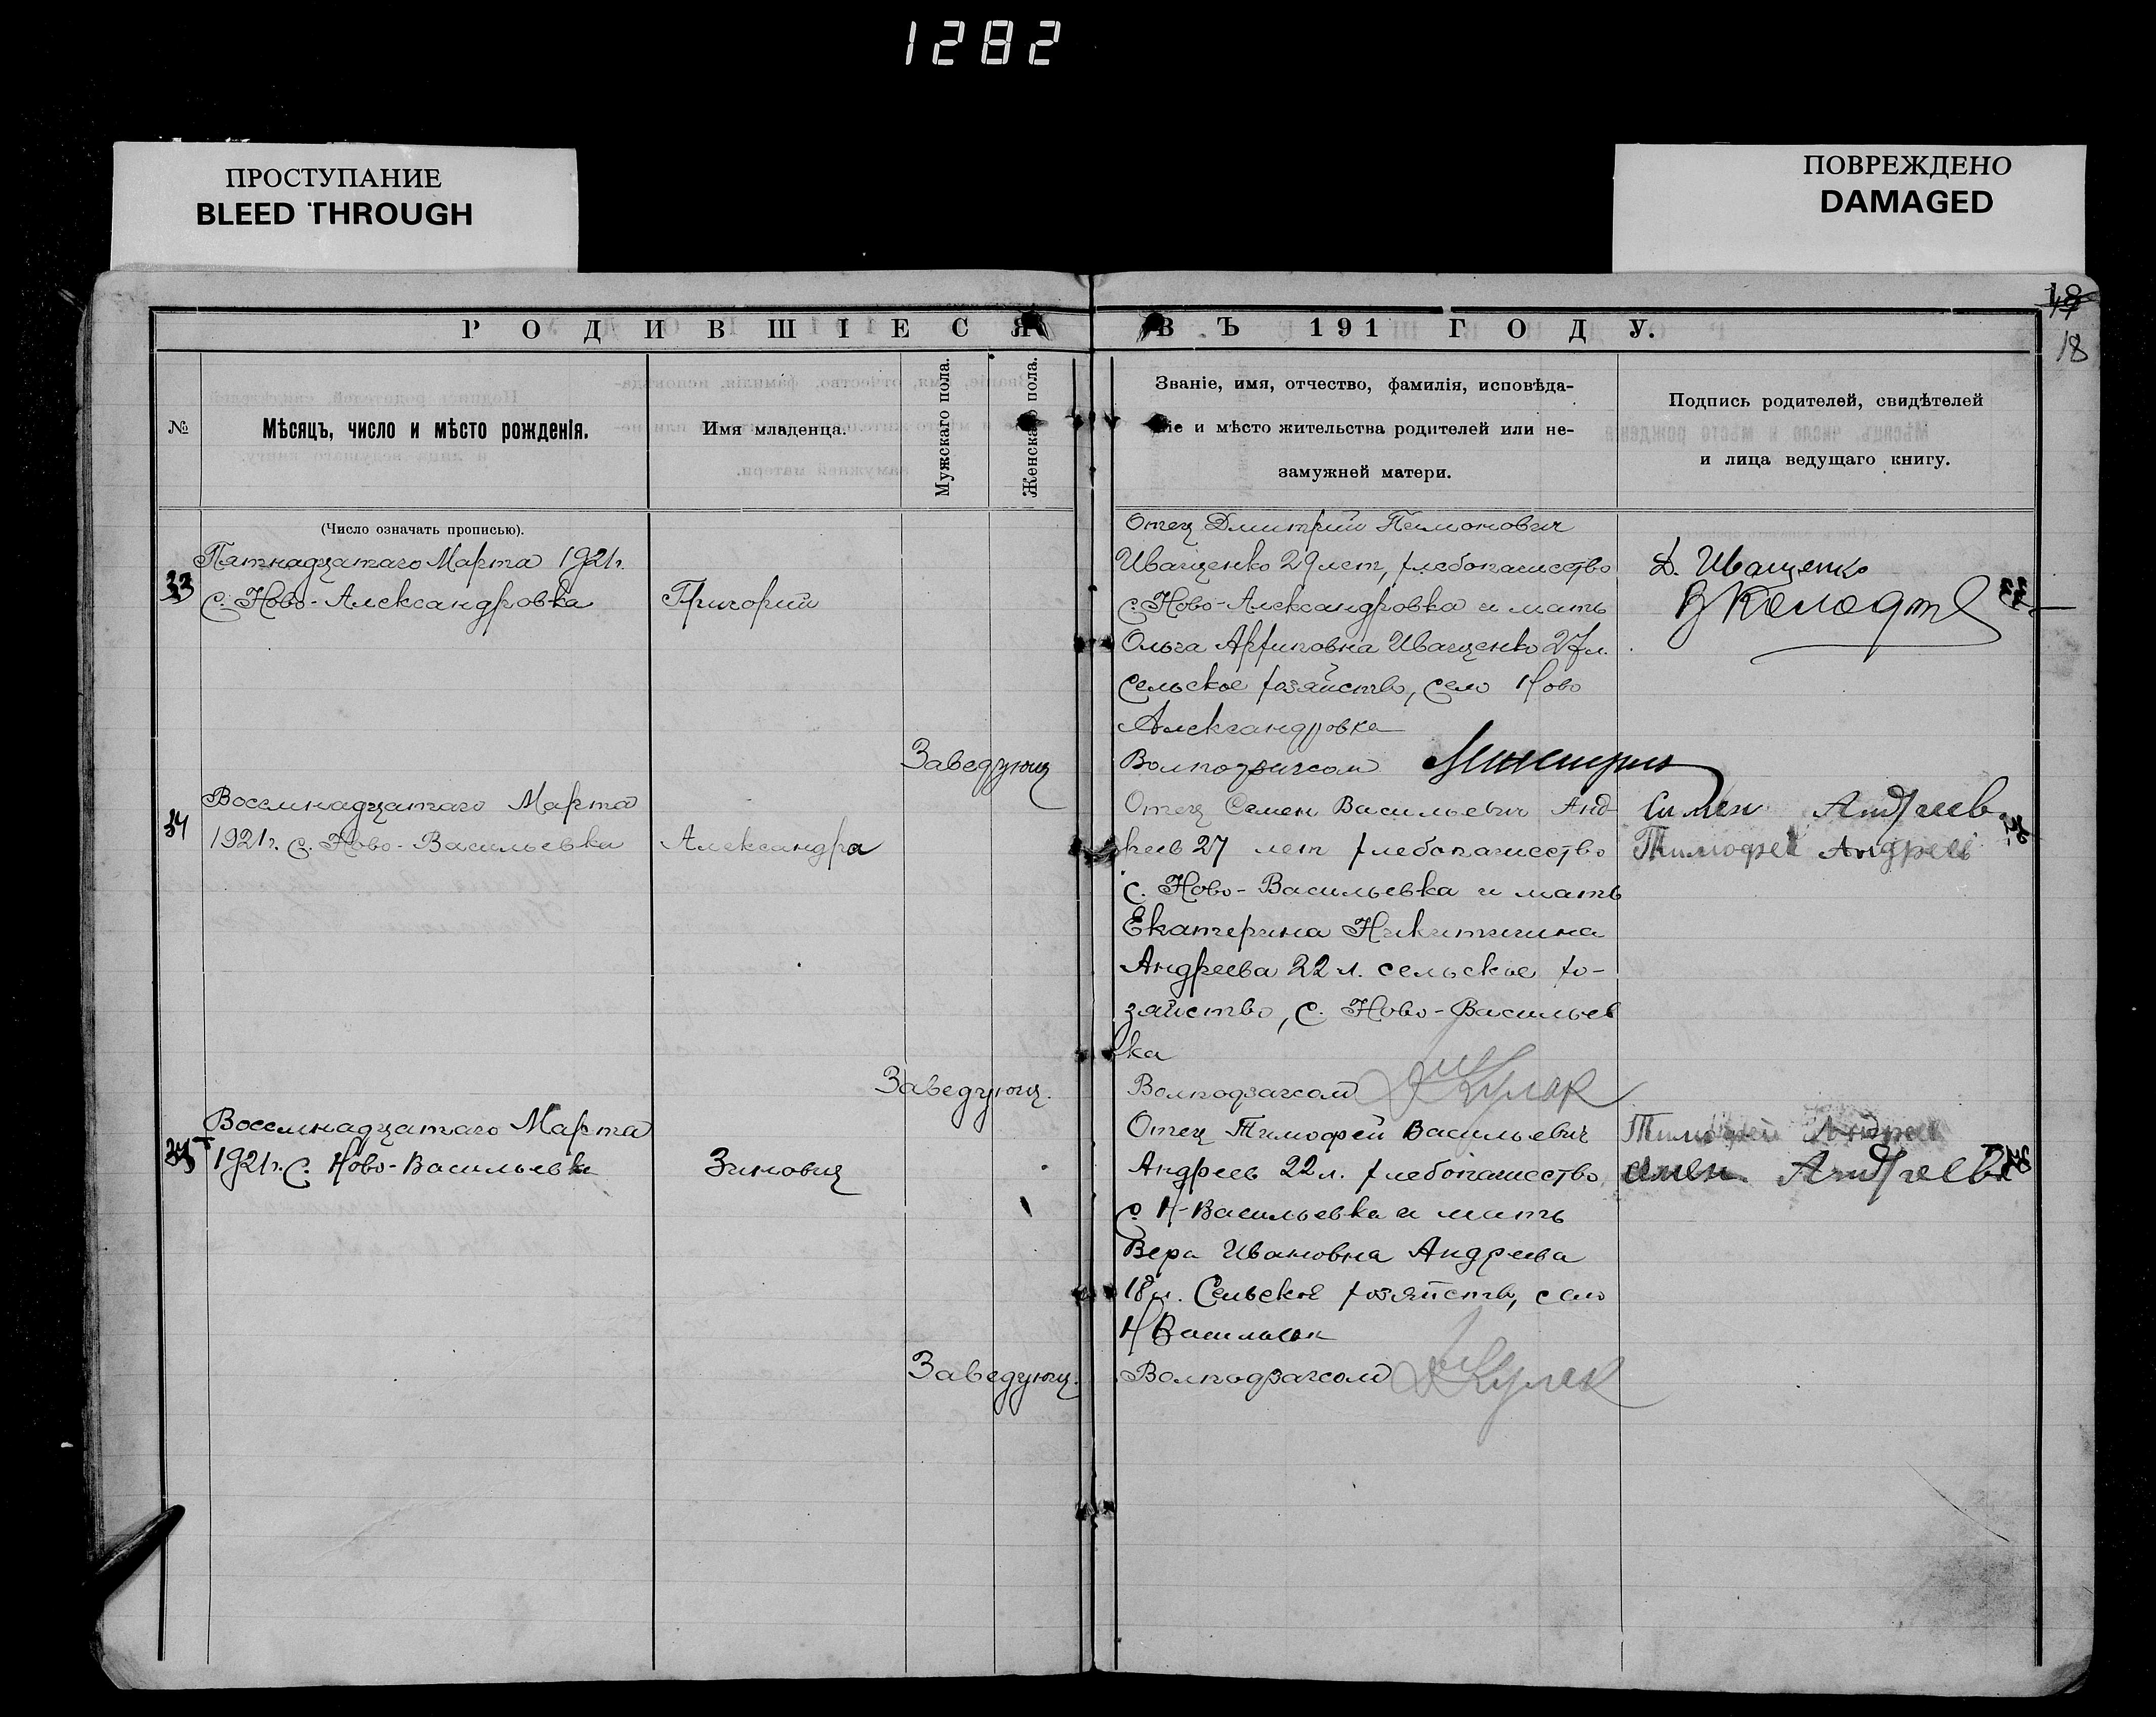 1282
ПРОСТУПАНИЕ
BLEED THROUGH
ПОВРЕЖДЕНО
DAMAGED
18
18
РОДИВШІЕСЯ ВЪ 191 ГОДУ.
№
Мѣсяцъ, число и мѣсто рожденія.
Имя младенца.
Мужскаго пола.
Женскаго пола.
Званіе, имя, отчество, фамилія, исповѣда-
ніе и мѣсто жительства родителей или не-
замужней матери.
Подпись родителей, свидѣтелей
и лица ведущаго книгу.
(Число означать прописью).
33
Пятнадцатаго Марта 1921г.
с. Ново-Александровка
Григорий
Отец Дмитрий
Иващенко 29 лет, хлебопашество
с. Ново-Александровка и мать
Ольга Архиповна Иващенко 27 л.
сельское хозяйство, село Ново
Александровка
Д. Иващенко
33
Заведующ
Волподзагсом
34
Восемнадцатаго Марта
1921г. с. Ново-Васильевка
Александра
Отец Семен Васильевич Анд-
реев 27 лет хлебопашество
с. Ново-Васильевка и мать
Екатерина Никитишна
Андреева 22 л. сельское хо-
зяйство, с. Ново-Васильев
ка
Андреев
Тимофей Андреев
Заведующ.
Волподзагсом
Восемнадцатаго Марта
1921г. с. Ново-Васильевка
Зиновий
Отец Тимофей Васильевич
Андреев 22 л. хлебопашество
с. Н-Васильевка и мать
Вера Ивановна Андреева
18 л. Сельское хозяйство, село
Тимофей Андреев
Андреев
Заведующ.
Волподзагсом